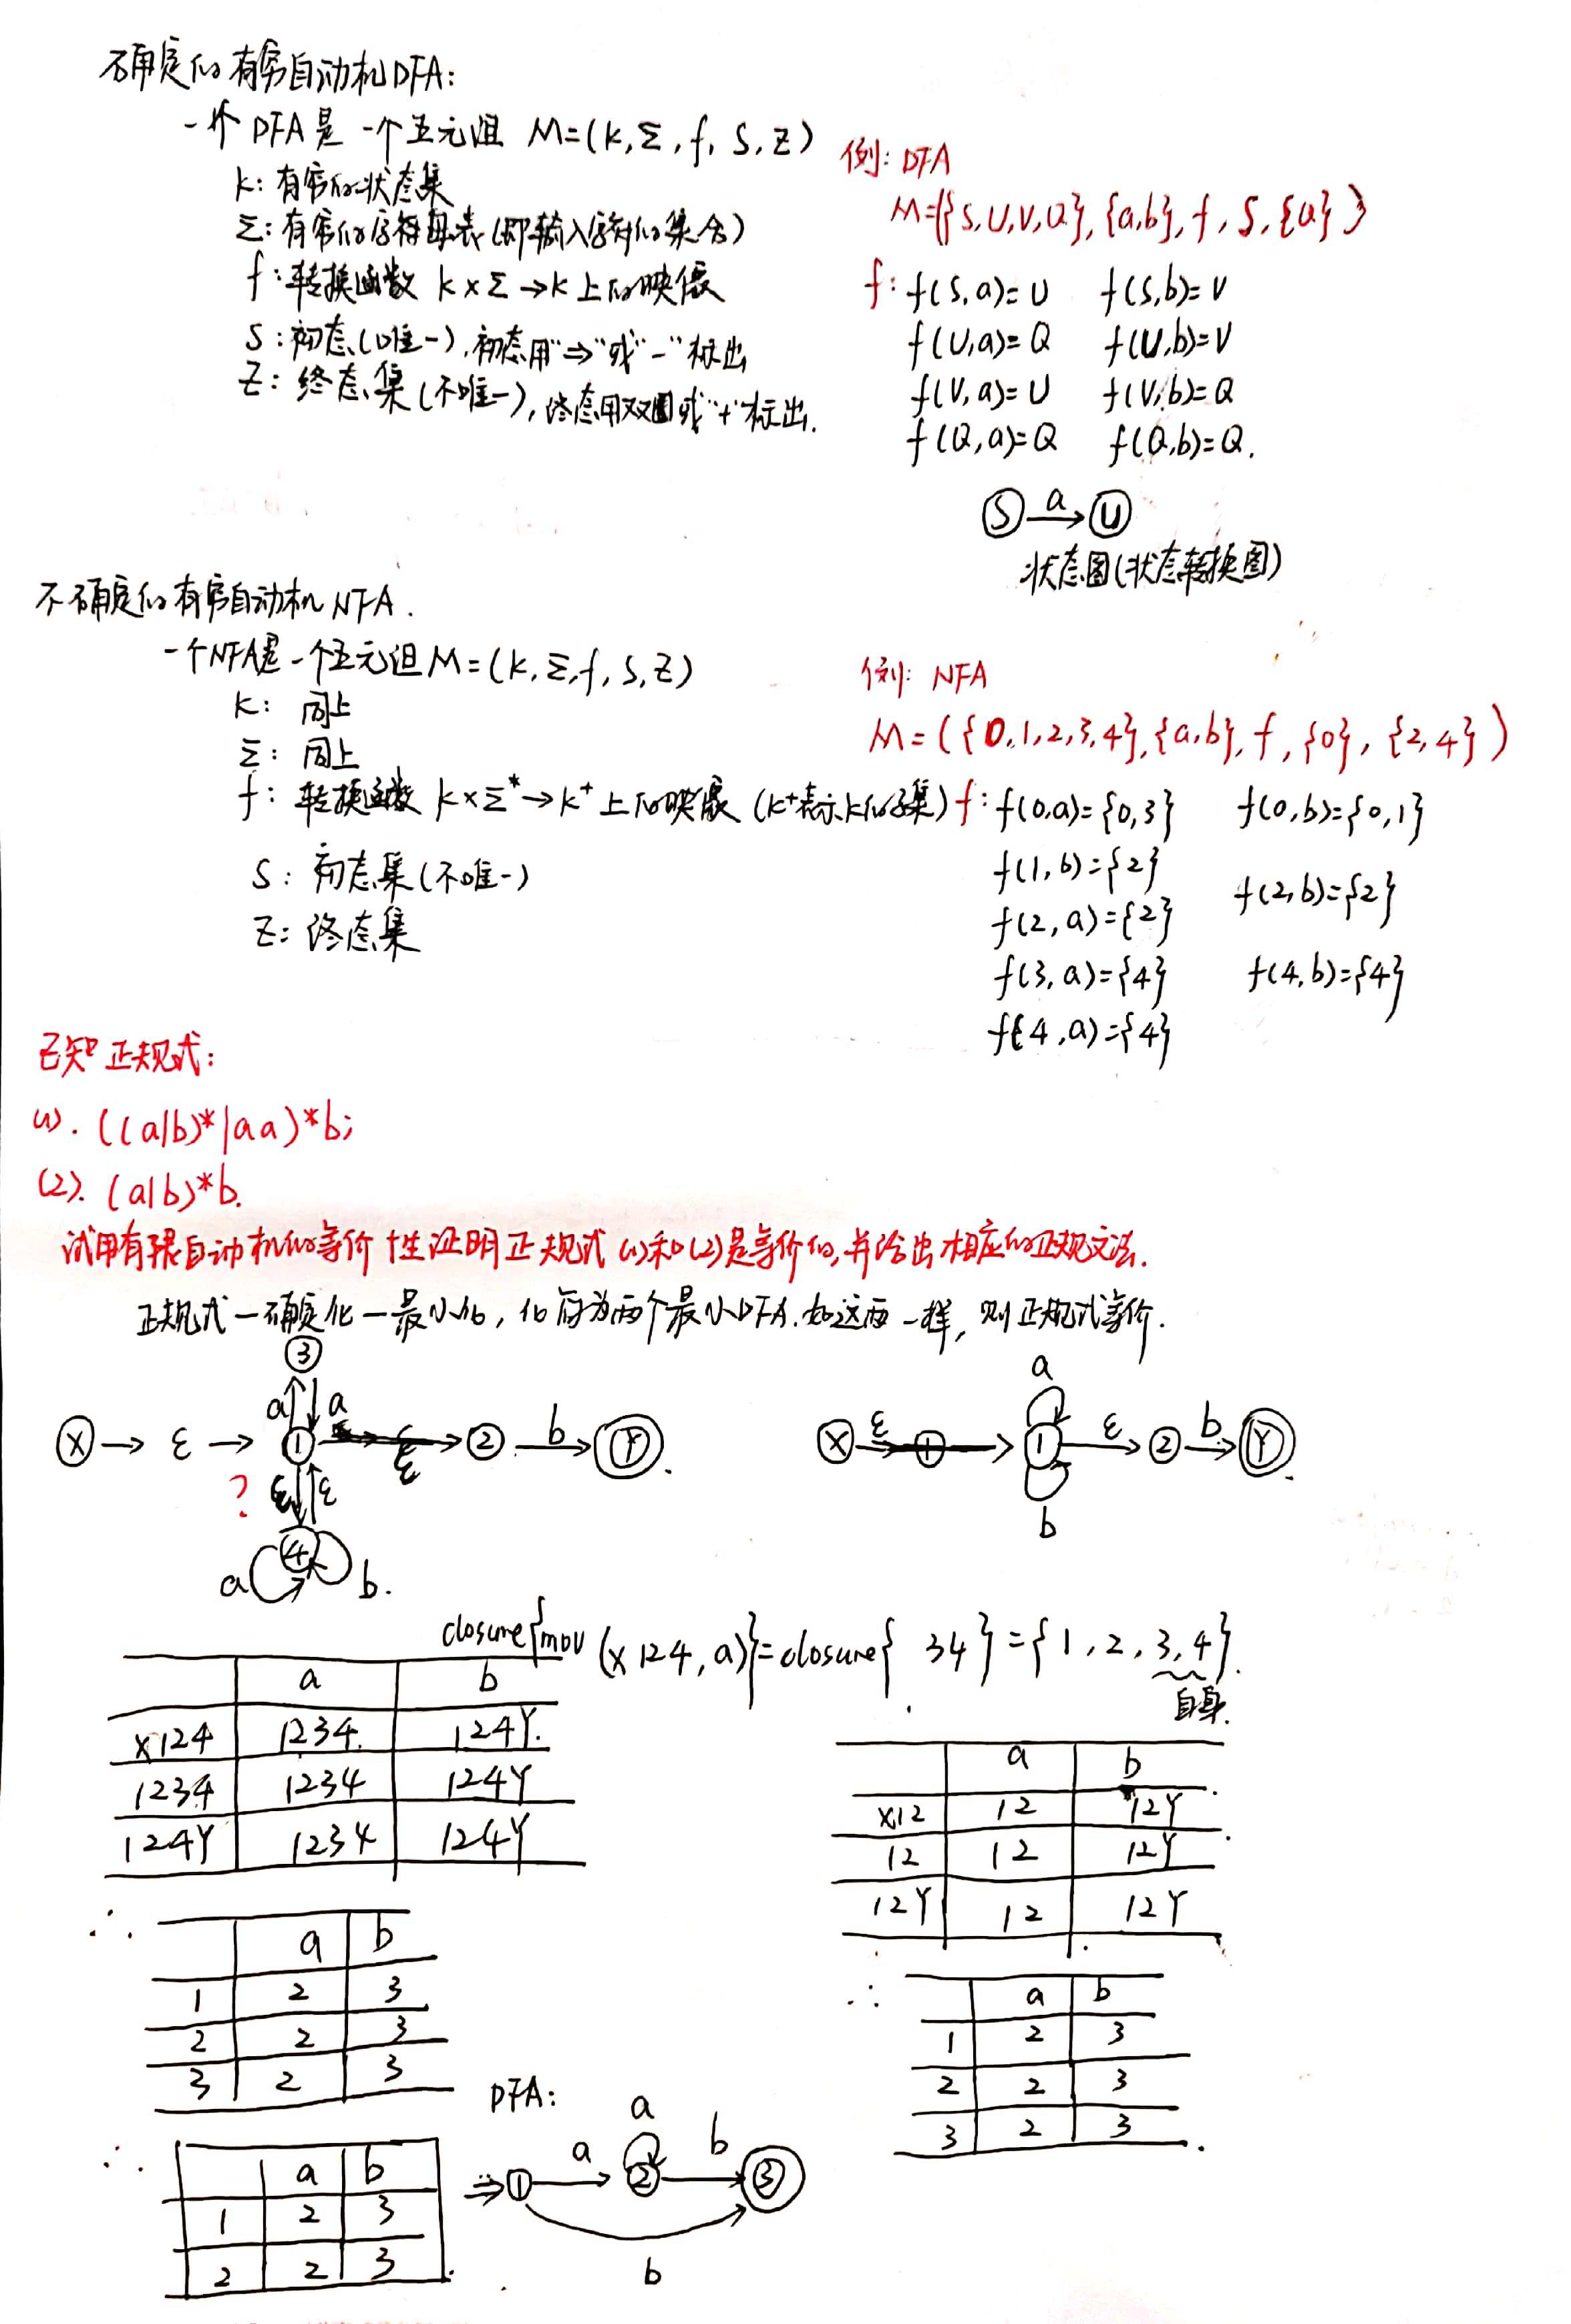 确定的有穷自动机DFA:
一个DFA是一个五元组 M=(K,Σ,f,S,Z)
K: 有穷的状态集
Σ: 有穷的字符母表(即输入字符的集合)
f: 转换函数 K×Σ→K上的映像
S: 初态(唯一),初态用"⇒"或"-"标出
Z: 终态集(不唯一),终态用双圈或"+"标出.
例: DFA
M=({S,U,V,Q},{a,b},f,S,{Q})
f: f(S,a)=U f(S,b)=V
f(U,a)=Q f(U,b)=V
f(V,a)=U f(V,b)=Q
f(Q,a)=Q f(Q,b)=Q.
S a U
状态图(状态转换图)
不确定的有穷自动机NFA.
一个NFA是一个五元组M=(K,Σ,f,S,Z)
K: 同上
Σ: 同上
f: 转换函数 K×Σ*→K⁺上的映像(K⁺表示K的子集)
S: 初态集(不唯一)
Z: 终态集
例: NFA
M=({0,1,2,3,4},{a,b},f,{0},{2,4})
f: f(0,a)={0,3} f(0,b)={0,1}
f(1,b)={2}
f(2,a)={2} f(2,b)={2}
f(3,a)={4} f(4,b)={4}
f(4,a)={4}
已知正规式:
(1). ((a|b)*|aa)*b;
(2). (a|b)*b.
试用有限自动机的等价性证明正规式(1)和(2)是等价的,并给出相应的正规文法.
正规式—确定化—最小化,化简为两个最小DFA.如这两一样,则正规式等价.
3
a a
X → ε → 1 ε 2 b Y.
? ε ε
4
a b.
a
X ε 1 1 ε 2 b Y
b
closure{mov(X124,a)}=closure{ 34}={1,2,3,4}.
自身.
a b
X124 1234. 124Y.
1234 1234 124Y
124Y 1234 124Y
a b
X12 12 12Y
12 12 12Y
12Y 12 12Y
∴ a b
1 2 3
2 2 3
3 2 3
∴ a b
1 2 3
2 2 3
3 2 3
DFA:
∴ a b
1 2 3
2 2 3
a
⇒ 1 a 2 b 3
b